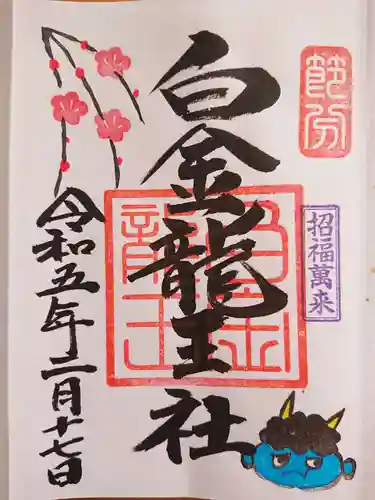 節分
招福萬来
白金龍王社
白金龍王
令和五年二月十七日